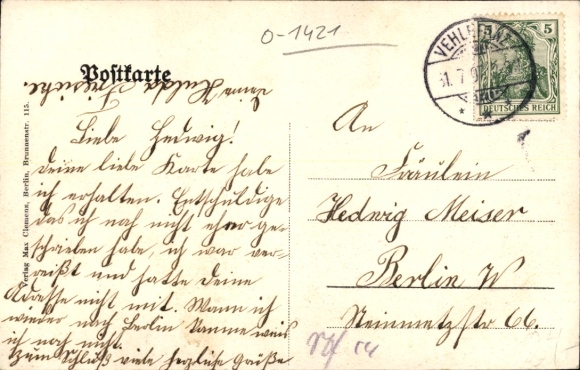 O-1421
Postkarte
VEHLEFANZ
31.7.
5
DEUTSCHES REICH
Verlag Max Clemens, Berlin, Brunnenstr. 115.
Liebe Hedwig!
Deine liebe Karte habe
ich erhalten. Entschuldige
das ich noch nicht eher ge-
schrieben habe, ich war ver-
reißt und hatte Deine
Adresse nicht mit. Wann ich
wieder nach Berlin komme weis
ich noch nicht.
Zum Schluß viele herzliche Grüße
Deine Hulda
An
Fräulein
Hedwig Meiser
Berlin W
Steinmetzstr 66.